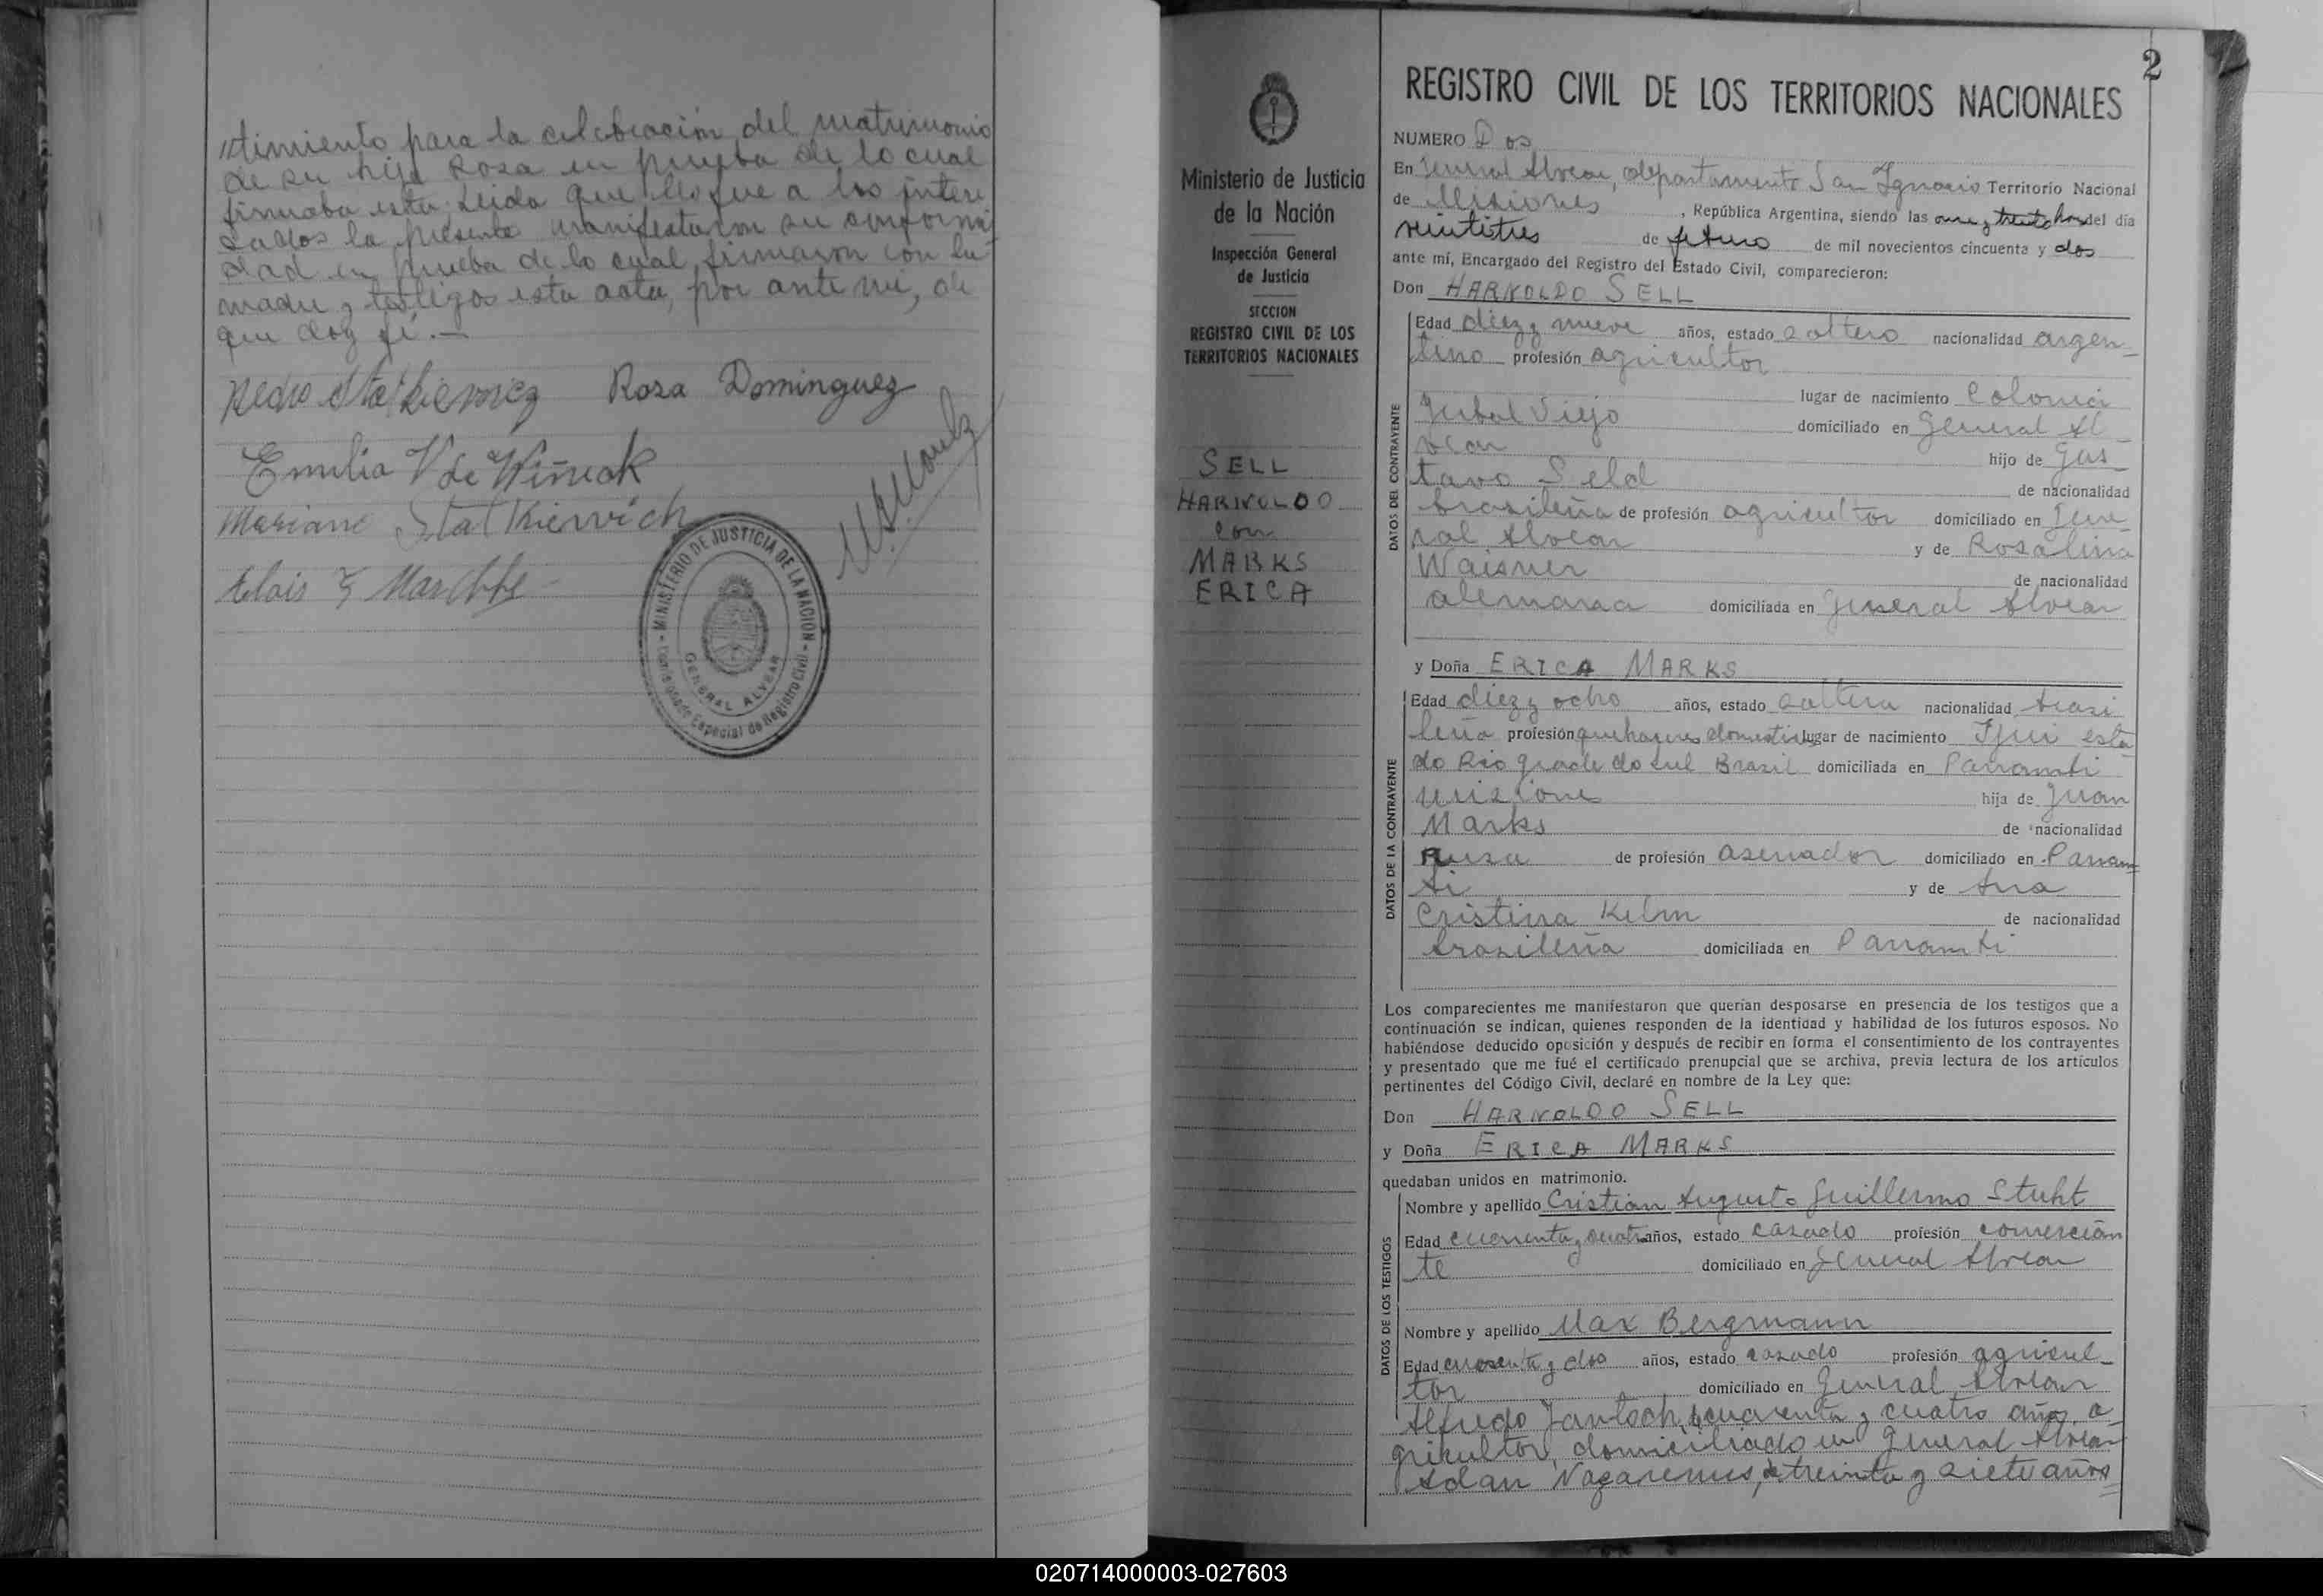 timiento para la celebración del matrimonio
de su hija Rosa en prueba de lo cual
firmaba esta. Leida que les fue a los intere
sados la presente manifestaron su conformi
dad en prueba de lo cual firmaron con la
madre y testigos esta acta, por ante mi, de
que doy fé.—
Pedro Statkievicz Rosa Dominguez
Emilia V de Wiñeak
Mariano Statkiewich
MINISTERIO DE JUSTICIA DE LA NACION
GENERAL ALVEAR
Especial de Registro Civil
2
Ministerio de Justicia
de la Nación
Inspección General
de Justicia
SECCION
REGISTRO CIVIL DE LOS
TERRITORIOS NACIONALES
SELL
HARNOLDO
con
MARKS
ERICA
REGISTRO CIVIL DE LOS TERRITORIOS NACIONALES
NUMERO Dos
En General Alvear, departamento San Ignacio Territorio Nacional
de Misiones, República Argentina, siendo las once y treinta horas del día
veintitres de febrero de mil novecientos cincuenta y dos
ante mí, Encargado del Registro del Estado Civil, comparecieron:
Don HARNOLDO SELL
DATOS DEL CONTRAYENTE
Edad diez y nueve años, estado soltero nacionalidad argen-
tino profesión agricultor
lugar de nacimiento Colonia
Yerbal Viejo domiciliado en General Al
vear hijo de Gus
tavo Seld de nacionalidad
brasileña de profesión agricultor domiciliado en Gene-
ral Alvear y de Rosalina
Waisner de nacionalidad
alemana domiciliada en General Alvear
y Doña ERICA MARKS
DATOS DE LA CONTRAYENTE
Edad diez y ocho años, estado soltera nacionalidad brasi
leña profesión quehaceres domesticos lugar de nacimiento Ijui esta
do Rio grade do sul Brasil domiciliada en Panambi
misiones hija de Juan
Marks de nacionalidad
Rusa de profesión aserrador domiciliado en Panam=
bi y de Ana
Cristina Kelm de nacionalidad
brasileña domiciliada en Panambi
Los comparecientes me manifestaron que querían desposarse en presencia de los testigos que a
continuación se indican, quienes responden de la identidad y habilidad de los futuros esposos. No
habiéndose deducido oposición y después de recibir en forma el consentimiento de los contrayentes
y presentado que me fué el certificado prenupcial que se archiva, previa lectura de los artículos
pertinentes del Código Civil, declaré en nombre de la Ley que:
Don HARNOLDO SELL
y Doña ERICA MARKS
quedaban unidos en matrimonio.
DATOS DE LOS TESTIGOS
Nombre y apellido Cristian Augusto Guillermo Stuht
Edad cuarenta y cuatro años, estado casado profesión comercian
te domiciliado en General Alvear
Nombre y apellido Max Bergmann
Edad cuarenta y dos años, estado casado profesión agricul-
tor domiciliado en General Alvear
Alfredo Jantsch, cuarenta y cuatro años, a-
gricultor, domiciliado en General Alvear
Adan Nazarenus, de treinta y siete años
020714000003-027603